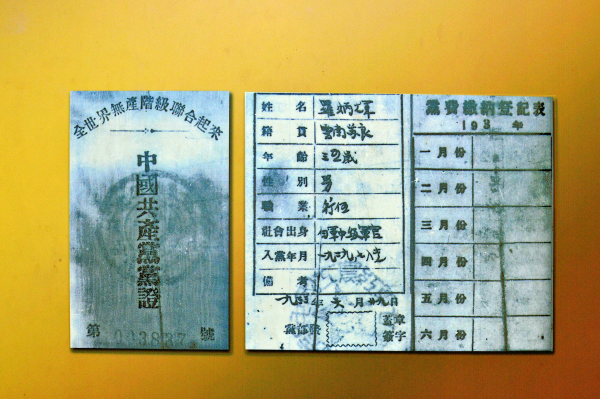 全世界無產階級聯合起來
中國共產黨黨證
第 003837 號
姓名 羅炳輝
籍貫 雲南彝良
年齡 三四歲
性別 男
職業 行伍
社會出身 白軍中級軍官
入黨年月 一九二九八
備考
一九三三年六月廿九日
黨部發
蓋章
簽字
黨費繳納登記表
193 年
一月份
二月份
三月份
四月份
五月份
六月份